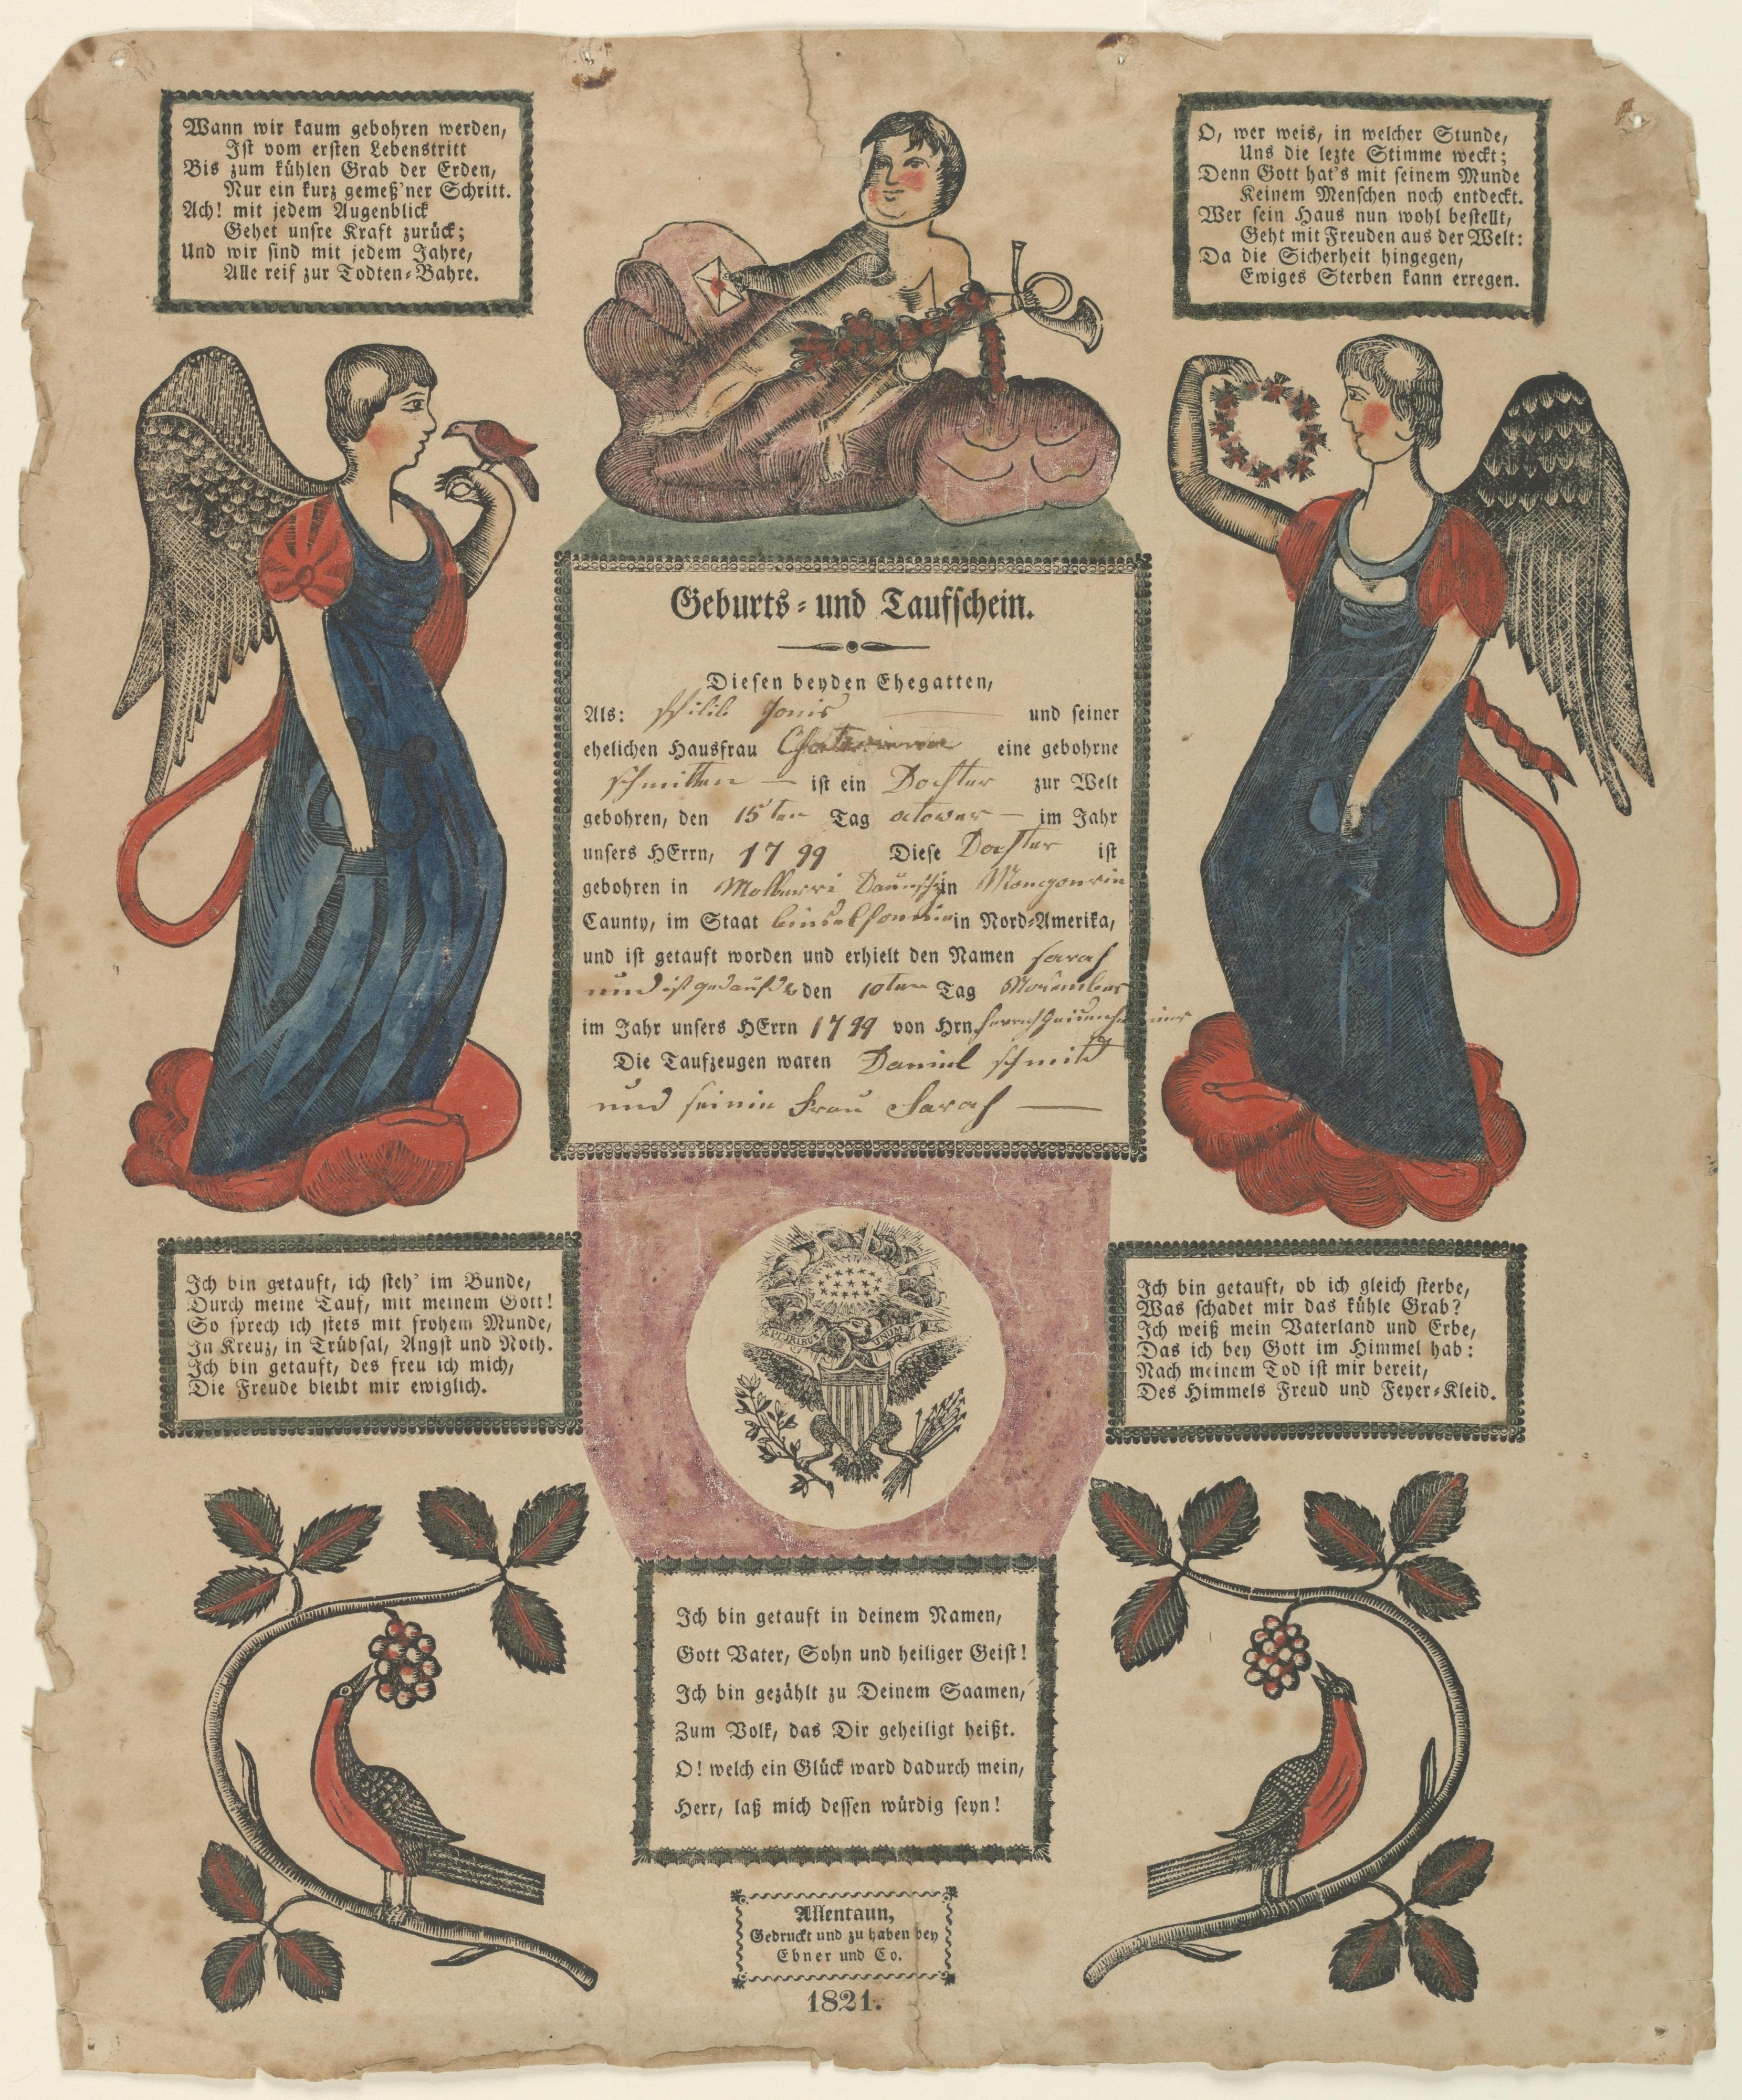 Wann wir kaum gebohren werden,
Ist vom ersten Lebenstritt
Bis zum kühlen Grab der Erden,
Nur ein kurz gemeß'ner Schritt.
Ach! mit jedem Augenblick
Gehet unsre Kraft zurück;
Und wir sind mit jedem Jahre,
Alle reif zur Todten-Bahre.
O, wer weis, in welcher Stunde,
Uns die lezte Stimme weckt;
Denn Gott hat's mit seinem Munde
Keinem Menschen noch entdeckt.
Wer sein Haus nun wohl bestellt,
Geht mit Freuden aus der Welt:
Da die Sicherheit hingegen,
Ewiges Sterben kann erregen.
Geburts- und Taufschein.
Diesen beyden Ehegatten,
Als: Philib Jonis und seiner
ehelichen Hausfrau Chatarinna eine gebohrne
schmitten — ist ein Dochter zur Welt
gebohren, den 15ten Tag octower — im Jahr
unsers HErrn, 1799 Diese Dochter ist
gebohren in in
Caunty, im Staat in Nord-Amerika,
und ist getauft worden und erhielt den Namen sarah
und ist den 10ten Tag November
im Jahr unsers HErrn 1799 von Hrn
Die Taufzeugen waren Daniel schmitt
und seinin Frau Sarah —
Ich bin getauft, ich steh' im Bunde,
Durch meine Tauf, mit meinem Gott!
So sprech ich stets mit frohem Munde,
In Kreuz, in Trübsal, Angst und Noth.
Ich bin getauft, des freu ich mich,
Die Freude bleibt mir ewiglich.
Ich bin getauft, ob ich gleich sterbe,
Was schadet mir das kühle Grab?
Ich weiß mein Vaterland und Erbe,
Das ich bey Gott im Himmel hab:
Nach meinem Tod ist mir bereit,
Des Himmels Freud und Feyer-Kleid.
PLURIBUS UNUM
Ich bin getauft in deinem Namen,
Gott Vater, Sohn und heiliger Geist!
Ich bin gezählt zu Deinem Saamen,
Zum Volk, das Dir geheiligt heißt.
O! welch ein Glück ward dadurch mein,
Herr, laß mich dessen würdig seyn!
Allentaun,
Gedruckt und zu haben bey
Ebner und Co.
1821.